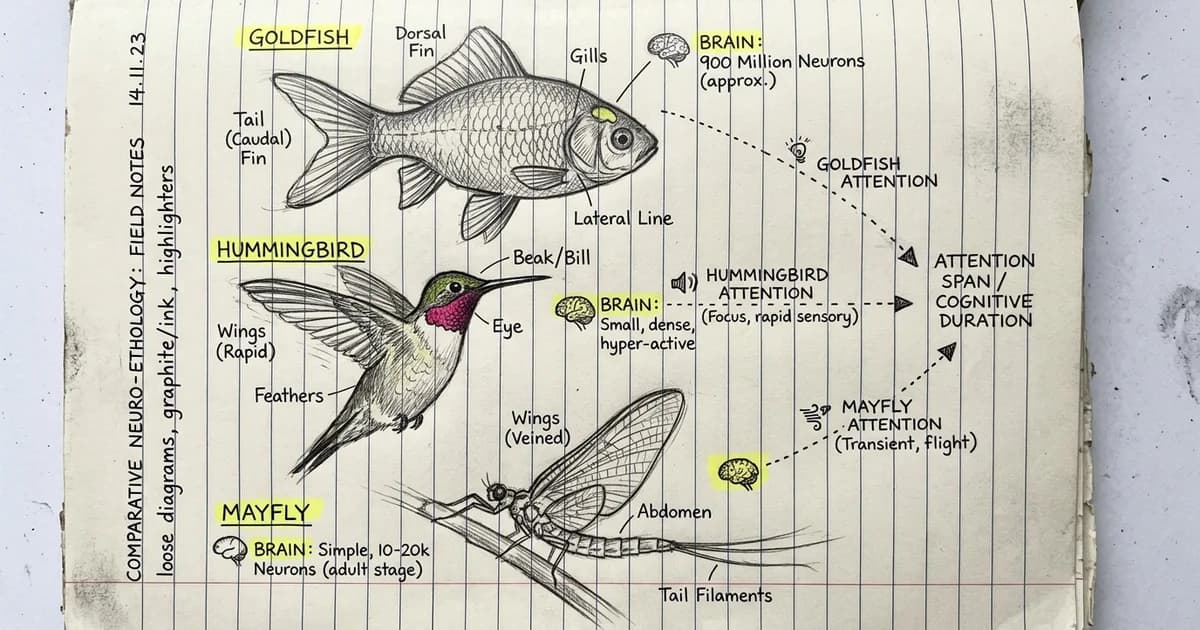 COMPARATIVE NEURO-ETHOLOGY: FIELD NOTES 14.11.23
loose diagrams, graphite/ink, highlighters
GOLDFISH
Dorsal
Fin
Gills
BRAIN:
900 Million Neurons
(approx.)
Tail
(Caudal)
Fin
Lateral Line
GOLDFISH
ATTENTION
HUMMINGBIRD
Beak/Bill
Wings
(Rapid)
Eye
Feathers
BRAIN:
Small, dense,
hyper-active
HUMMINGBIRD
ATTENTION
(Focus, rapid sensory)
ATTENTION
SPAN /
COGNITIVE
DURATION
Wings
(Veined)
MAYFLY
ATTENTION
(Transient, flight)
MAYFLY
BRAIN: Simple, 10-20k
Neurons (adult stage)
Abdomen
Tail Filaments